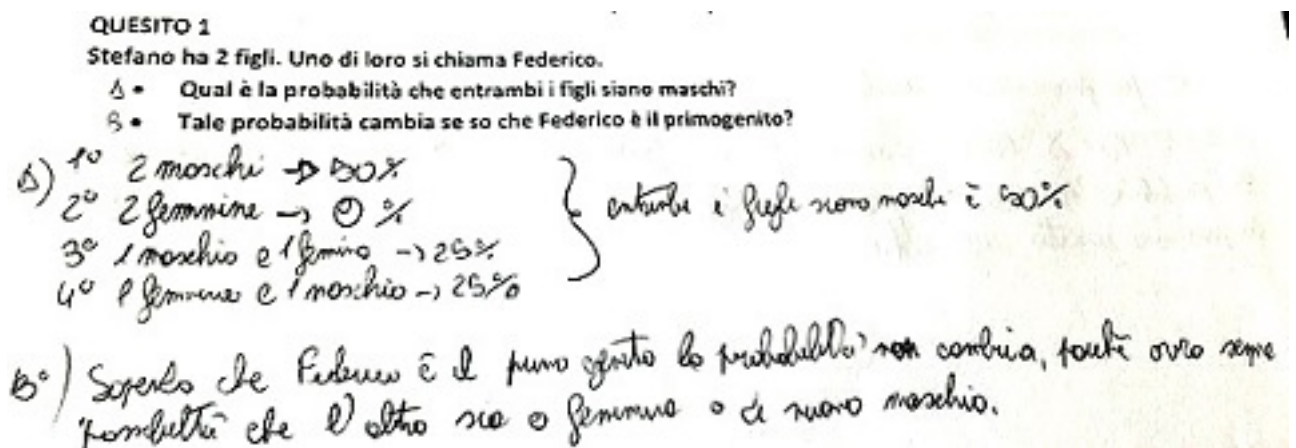 QUESITO 1
Stefano ha 2 figli. Uno di loro si chiama Federico.
A • Qual è la probabilità che entrambi i figli siano maschi?
B • Tale probabilità cambia se so che Federico è il primogenito?
A) 1° 2 maschi → 50%
2° 2 femmine → 0 %
3° 1 maschio e 1 femmina → 25%
4° 1 femmina e 1 maschio → 25%
entrambi i figli siano maschi è 50%
B°) Sapendo che Federico è il primo genito la probabilità non cambia, perché avrò sempre
possibilità che l'altro sia o femmina o di nuovo maschio.